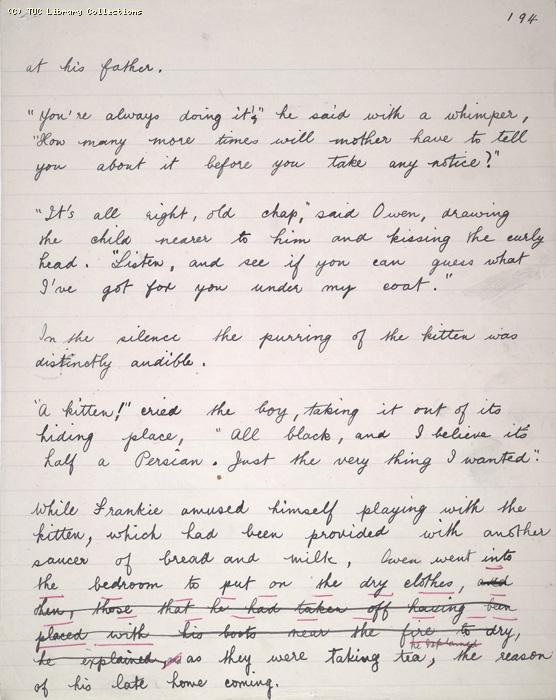 (C) TUC Library Collections
194
at his father.
"You're always doing it!;" he said with a whimper,
"How many more times will mother have to tell
you about it before you take any notice?"
"It's all right, old chap," said Owen, drawing
the child nearer to him and kissing the curly
head. "Listen, and see if you can guess what
I've got for you under my coat."
In the silence the purring of the kitten was
distinctly audible.
"A kitten!" cried the boy, taking it out of its
hiding place, "All black, and I believe its
half a Persian. Just the very thing I wanted".
While Frankie amused himself playing with the
kitten, which had been provided with another
saucer of bread and milk, Owen went into
the bedroom to put on the dry clothes, and
then, those that he had taken off having been
placed with his boots near the fire to dry,
he explained
he explained, as as they were taking tea, the reason
of his late home coming.